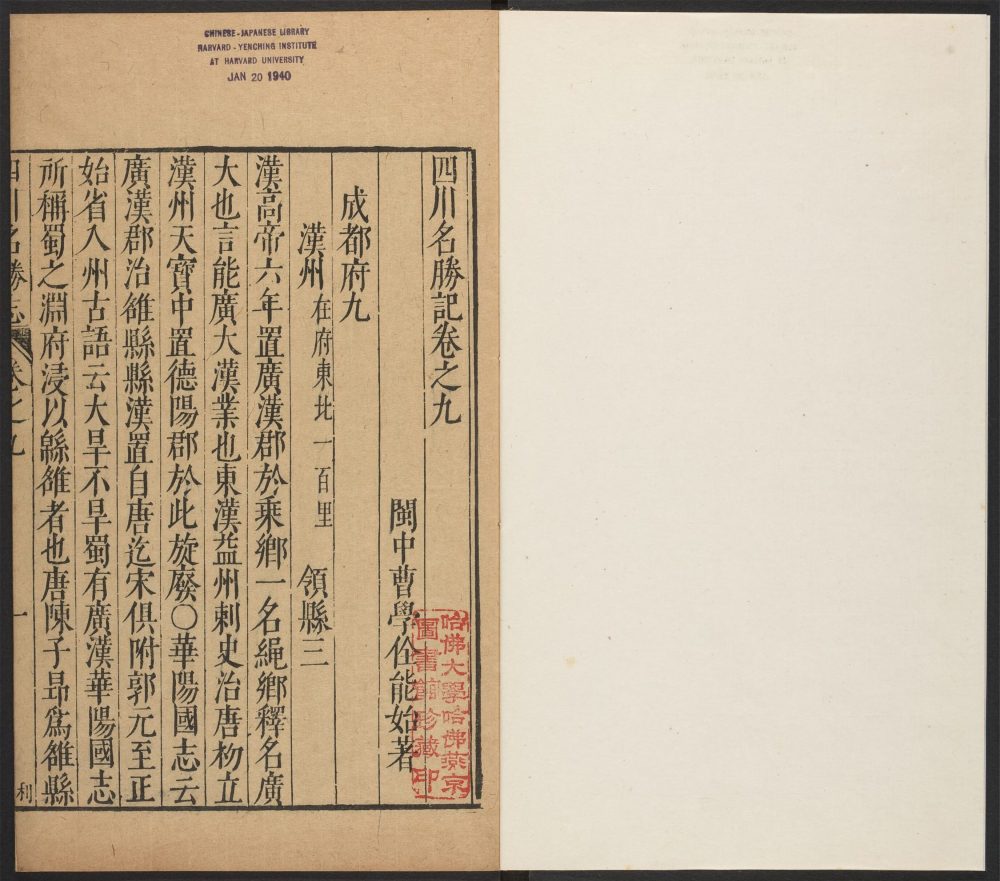 CHINESE-JAPANESE LIBRARY
HARVARD-YENCHING INSTITUTE
AT HARVARD UNIVERSITY
JAN 20 1940
四川名勝記卷之九
閩中曹學佺能始著
哈佛大學哈佛燕京
圖書館珍藏印
成都府九
漢州在府東北一百里 領縣三
漢高帝六年置廣漢郡於乘鄉一名繩鄉釋名廣
大也言能廣大漢業也東漢益州刺史治唐初立
漢州天寶中置德陽郡於此旋廢○華陽國志云
廣漢郡治雒縣縣漢置自唐迄宋俱附郭元至正
始省入州古語云大旱不旱蜀有廣漢華陽國志
所稱蜀之淵府浸以緜雒者也唐陳子昂爲雒縣
利
四川名勝志 卷之九 一